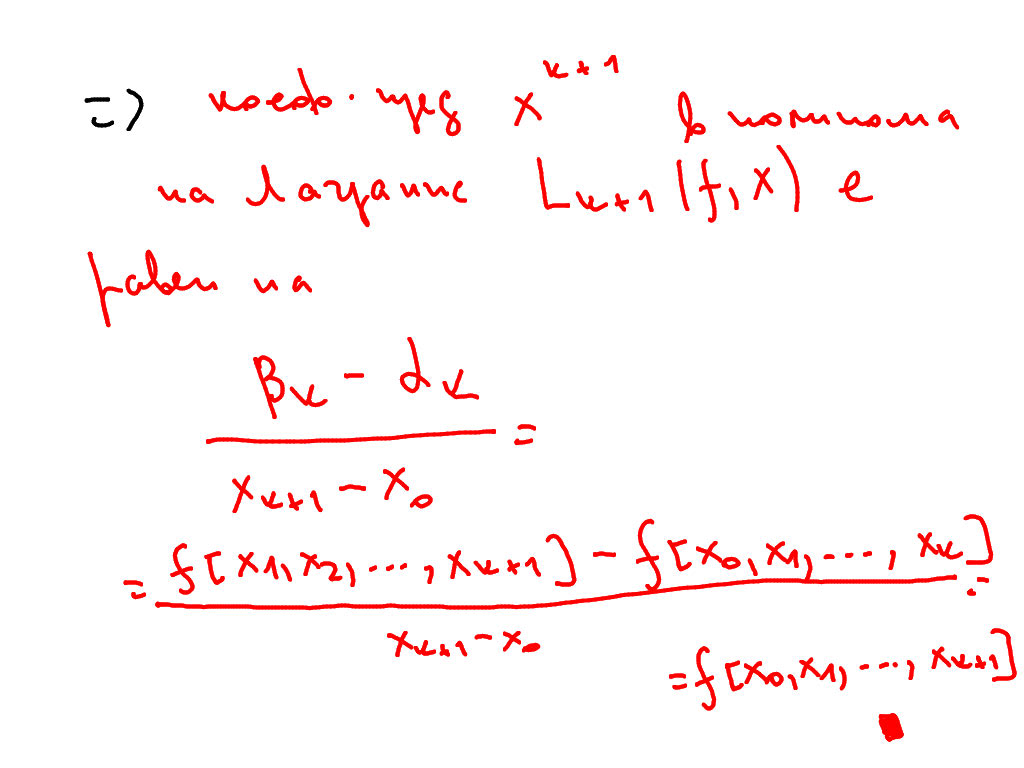 => коеф. пред x^{k+1} в полинома
на Лагранж L_{k+1}(f,x) е
равен на
\frac{β_k - α_k}{x_{k+1} - x_0} =
= \frac{f[x_1, x_2, ..., x_{k+1}] - f[x_0, x_1, ..., x_k]}{x_{k+1} - x_0} =
= f[x_0, x_1, ..., x_{k+1}]